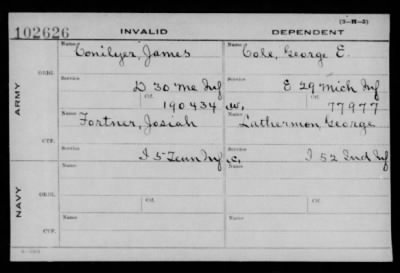 (3-H-3)
102626 INVALID DEPENDENT
Name Conilyer, James Name Cole, George E.
ARMY
ORIG.
Service D 30 Me Inf Service E 29 Mich Inf
Ctf. 190434 W. Ctf. 77977
Name Fortner, Josiah Name Lathermon, George
CTF.
Service I 5 Tenn Inf C. Service I 52 Ind Inf
NAVY
ORIG.
Name Name
CTF.
Name Name